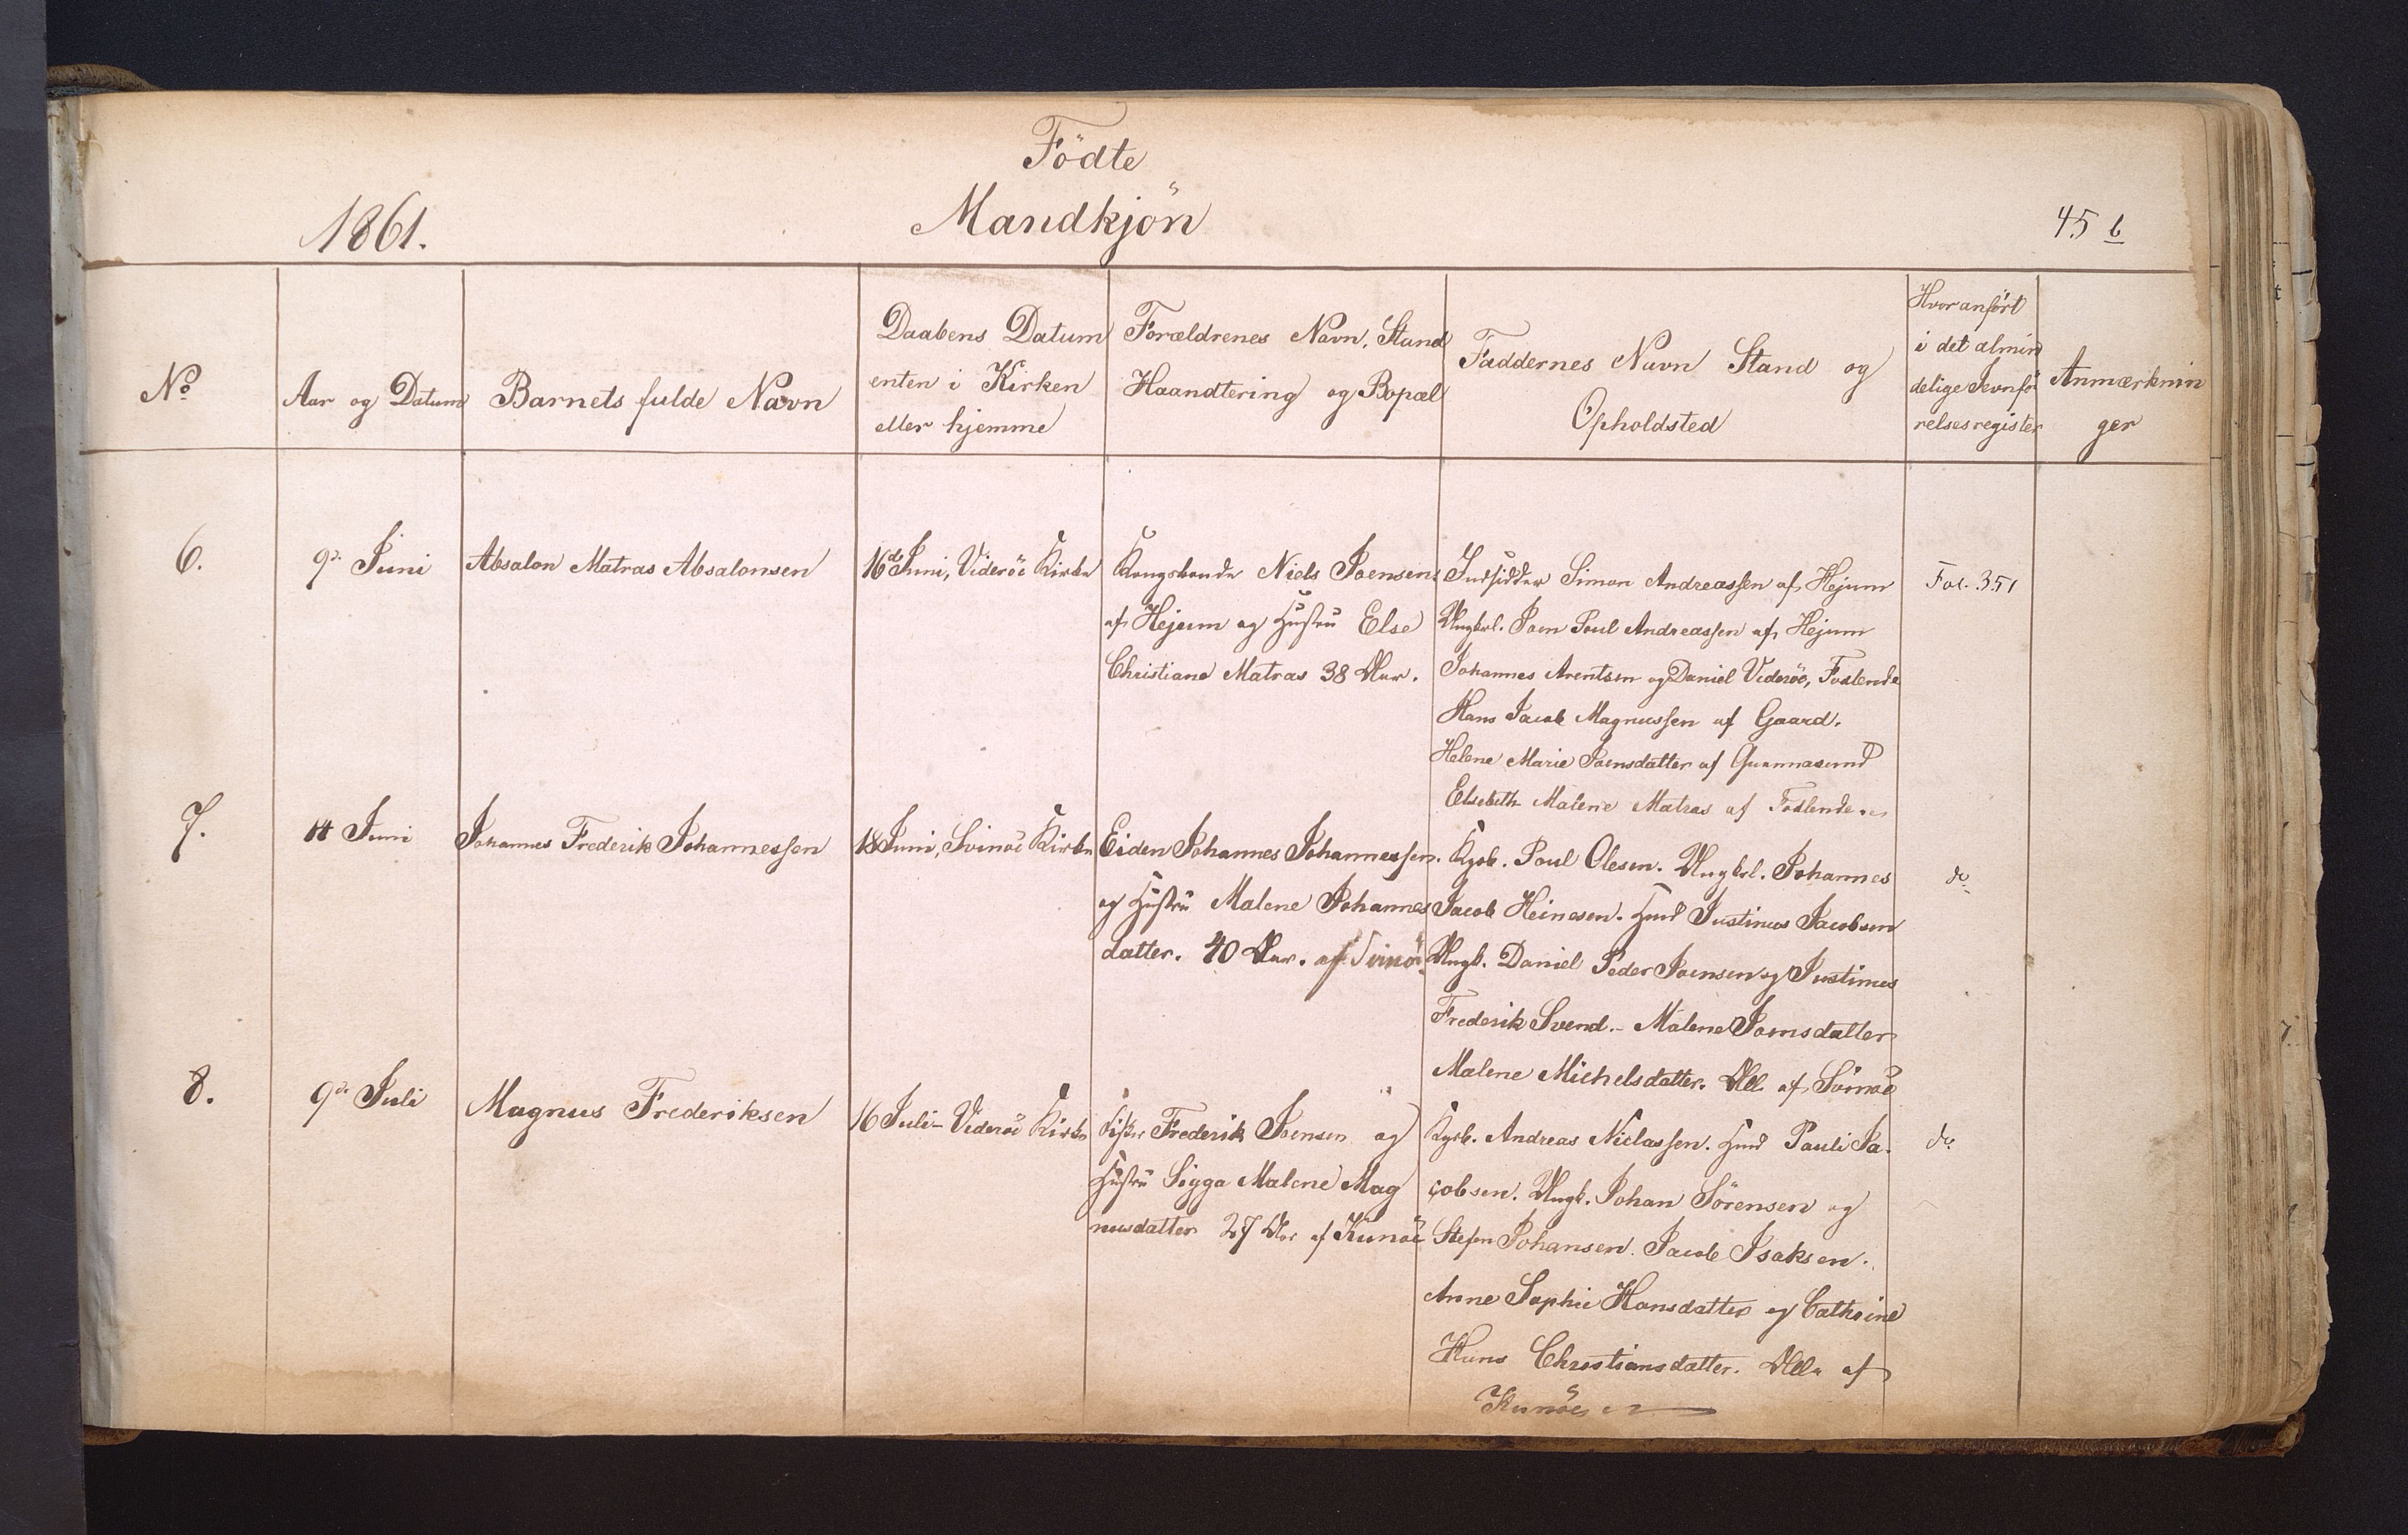 Födte
1861. Mandkjön 45 b
No
Aar og Datum
Barnets fulde Navn
Daabens Datum
enten i Kirken
eller hjemme
Forældrenes Navn, Stand
Haandtering og Bopæl
Faddernes Navn Stand og
Opholdsted
Hvor anfört
i det almin
delige Jevnfö
relsesregister
Anmærknin
ger
6.
9de Juni
Absalon Matras Absalonsen
16de Juni, Videröe Kirke
Kongsbonde Niels Joensen
af Hejum og Hustru Else
Christiane Matras 38 Aar.
Indsidder Simon Andreassen af Hejum
Ungkrl. Joen Poul Andreassen af Hejum
Johannes Arentsen og Daniel Videröe,
Hans Jacob Magnussen af Gaard.
Helene Marie Joensdatter af Quannasund
Elsebeth Malene Matras af
Fol. 351
7.
14 Juni
Johannes Frederik Johannessen
18 Juni, Svinöe Kirke
Eiden Johannes Johannessen.
og Hustru Malene Johannes
datter. 40 Aar. af Svinöe
Kgsb. Poul Olesen. Ungkrl. Johannes
Jacob Heinesen. Hmd Justinus Jacobsen
Ungk. Daniel Peder Joensen og Justinus
Frederik Svend. - Malene Joensdatter
Malene Michelsdatter. Alle af Svinöe
do
8.
9de Juli
Magnus Frederiksen
16 Juli - Videröe Kirke
Fisker Frederik Joensen og
Hustru Sigga Malene Mag
nusdatter 27 Aar af Kunöe
Kgsb. Andreas Niclassen. Hmd Pauli Ja-
cobsen. Ungk. Johan Sörensen og
Stefen Johansen. Jacob Isaksen.
Anne Sophie Hansdatter og Cathrine
Hans Christiansdatter. Alle af
Kunöe
do